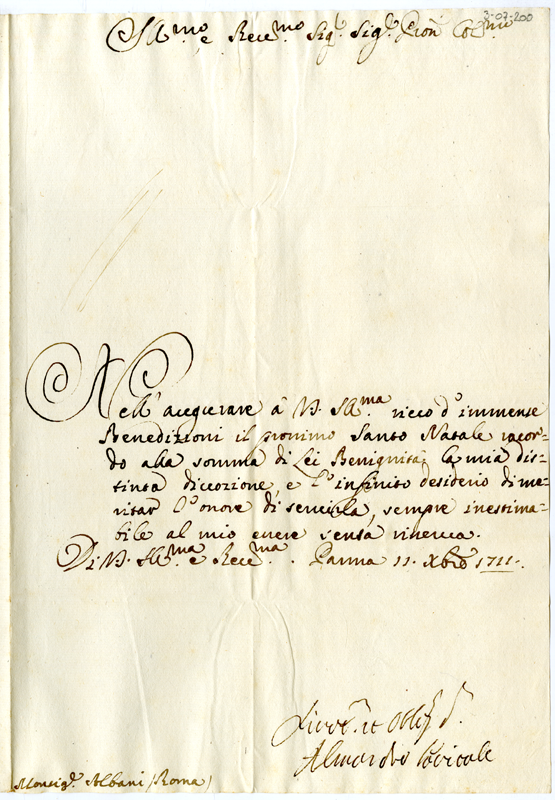 3-07-200
Ill.mo e Rev.mo Sig.r Sig.r Pron Col.mo
Nell' augurare à V. Ill.ma ricco d'immense
Benedizioni il prossimo Santo Natale ricor-
do alla somma di Lei Benignità, la mia dis-
tinta divozione, e l'infinito desiderio di me-
ritar l'onore di servirla, sempre inestima-
bile al mio essere senza riserva.
Di V. Ill.ma e Rev.ma. Parma 11. Xbre 1711.
Monsig.r Albani (Roma)